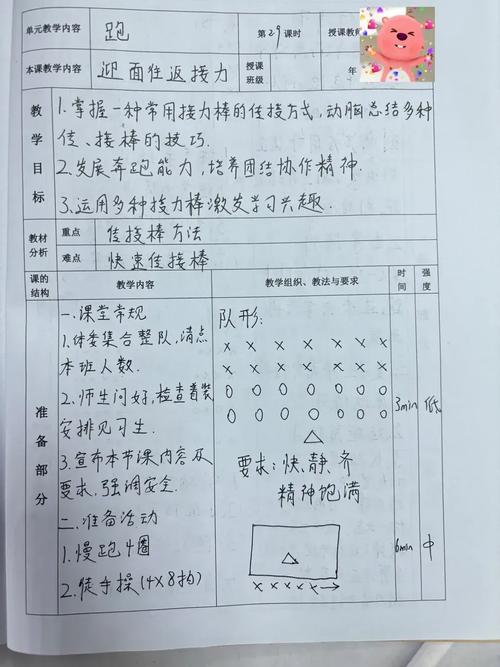 单元教学内容 跑 第29课时 授课教师
本课教学内容 迎面往返接力 授课班级 年
教学目标
1.掌握一种常用接力棒的传技方式,动脑总结多种
传、接棒的技巧.
2.发展奔跑能力,培养团结协作精神.
3.运用多种接力棒激发学习兴趣.
教材分析
重点 传接棒方法
难点 快速传接棒
课的结构 教学内容 教学组织、教法与要求 时间 强度
准备部分
一.课堂常规
1.体委集合整队,清点
本班人数.
2.师生问好,检查着装
安排见习生.
3.宣布本节课内容及
要求,强调安全.
二.准备活动
1.慢跑4圈
2.徒手操(4×8拍)
队形:
× × × × × × ×
× × × × × × ×
○ ○ ○ ○ ○ ○ ○
○ ○ ○ ○ ○ ○ ○
要求:快、静、齐
精神饱满
× × × × ×
3min 低
6min 中